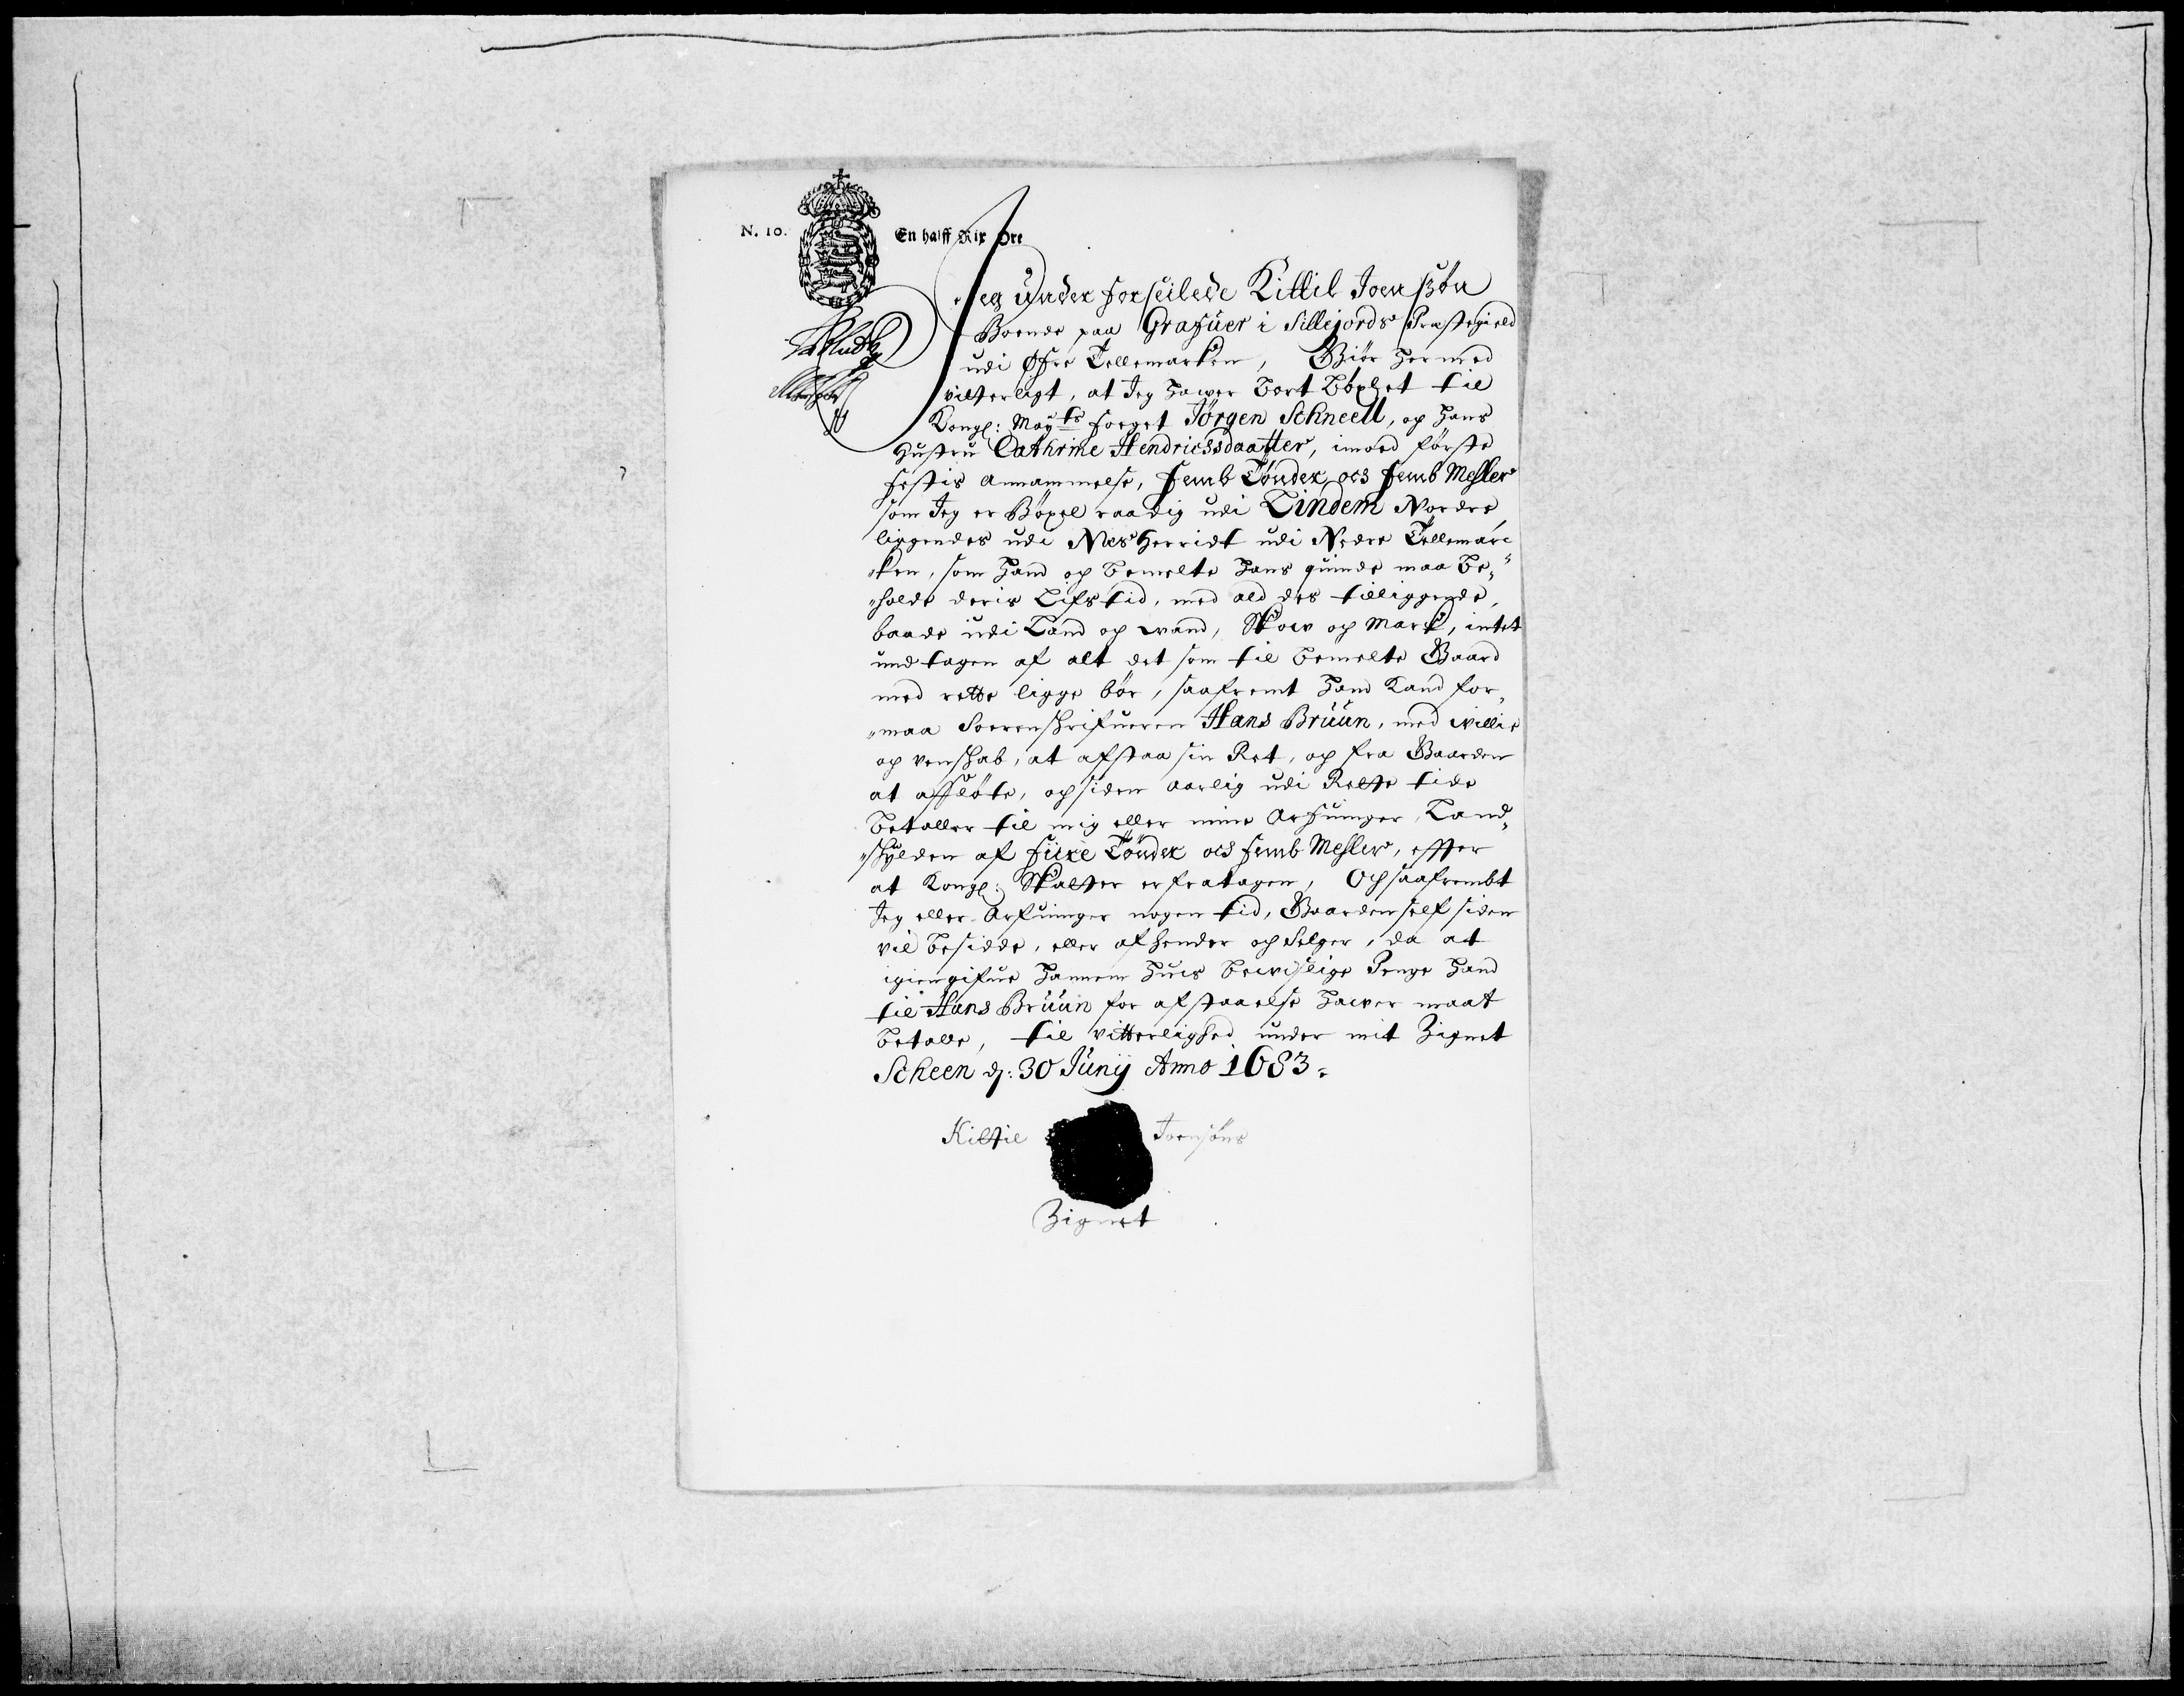 N. 10.
En halff Rix Ort
Jeg Under forseilede Kittil Joenßön
Boende paa Grafuer i Sillejords Præstegield
udi Øfre Tellemarken, Giör hermed
vitterligt, at Jeg hawer bort böxlet til
Kongl: Mayts foeget Jörgen Schneell, og hans
Hustru Cathrine Hendrichsdaatter, imod förste
festis annammelse, femb Tönder och femb Mesler
som Jeg er Böxel raadig udi Lindem Nordre
liggendes udi Nes Herridt udi Nedre Tellemarc
ken, som hand og bemelte hans quinde maa be„
„holde deris Lifs tid, med ald des tilliggende,
baade udi Land og wand, Skow og Marck, intet
undtagen af alt det som til bemelte Gaard
med rette ligge bör, saafremt hand kand for„
„maa Sorenskrifueren Hans Brüün, med willie
og venskab, at afstaa sin Ret, og fra Gaarden
at affløte, og siden aarlig udi Rette tide
betaller til mig eller mine Arfuinger, Land„
„skylden af fiire Tönder och femb Mesler, effter
at Kongl: Skatter er fratagen, Och saafrembt
Jeg eller Arfuinger nogen tid, Gaarden self siden
vil besidde, eller afhender och Selger, da at
igiengifue hannem huis bewislige Penge hand
til Hans Brüün for afstaaelse hawer maat
betalle, til vitterlighed under mit Zignet
Scheen d: 30 Junij Anno 1683.
Kittil Joensöns
Zignet